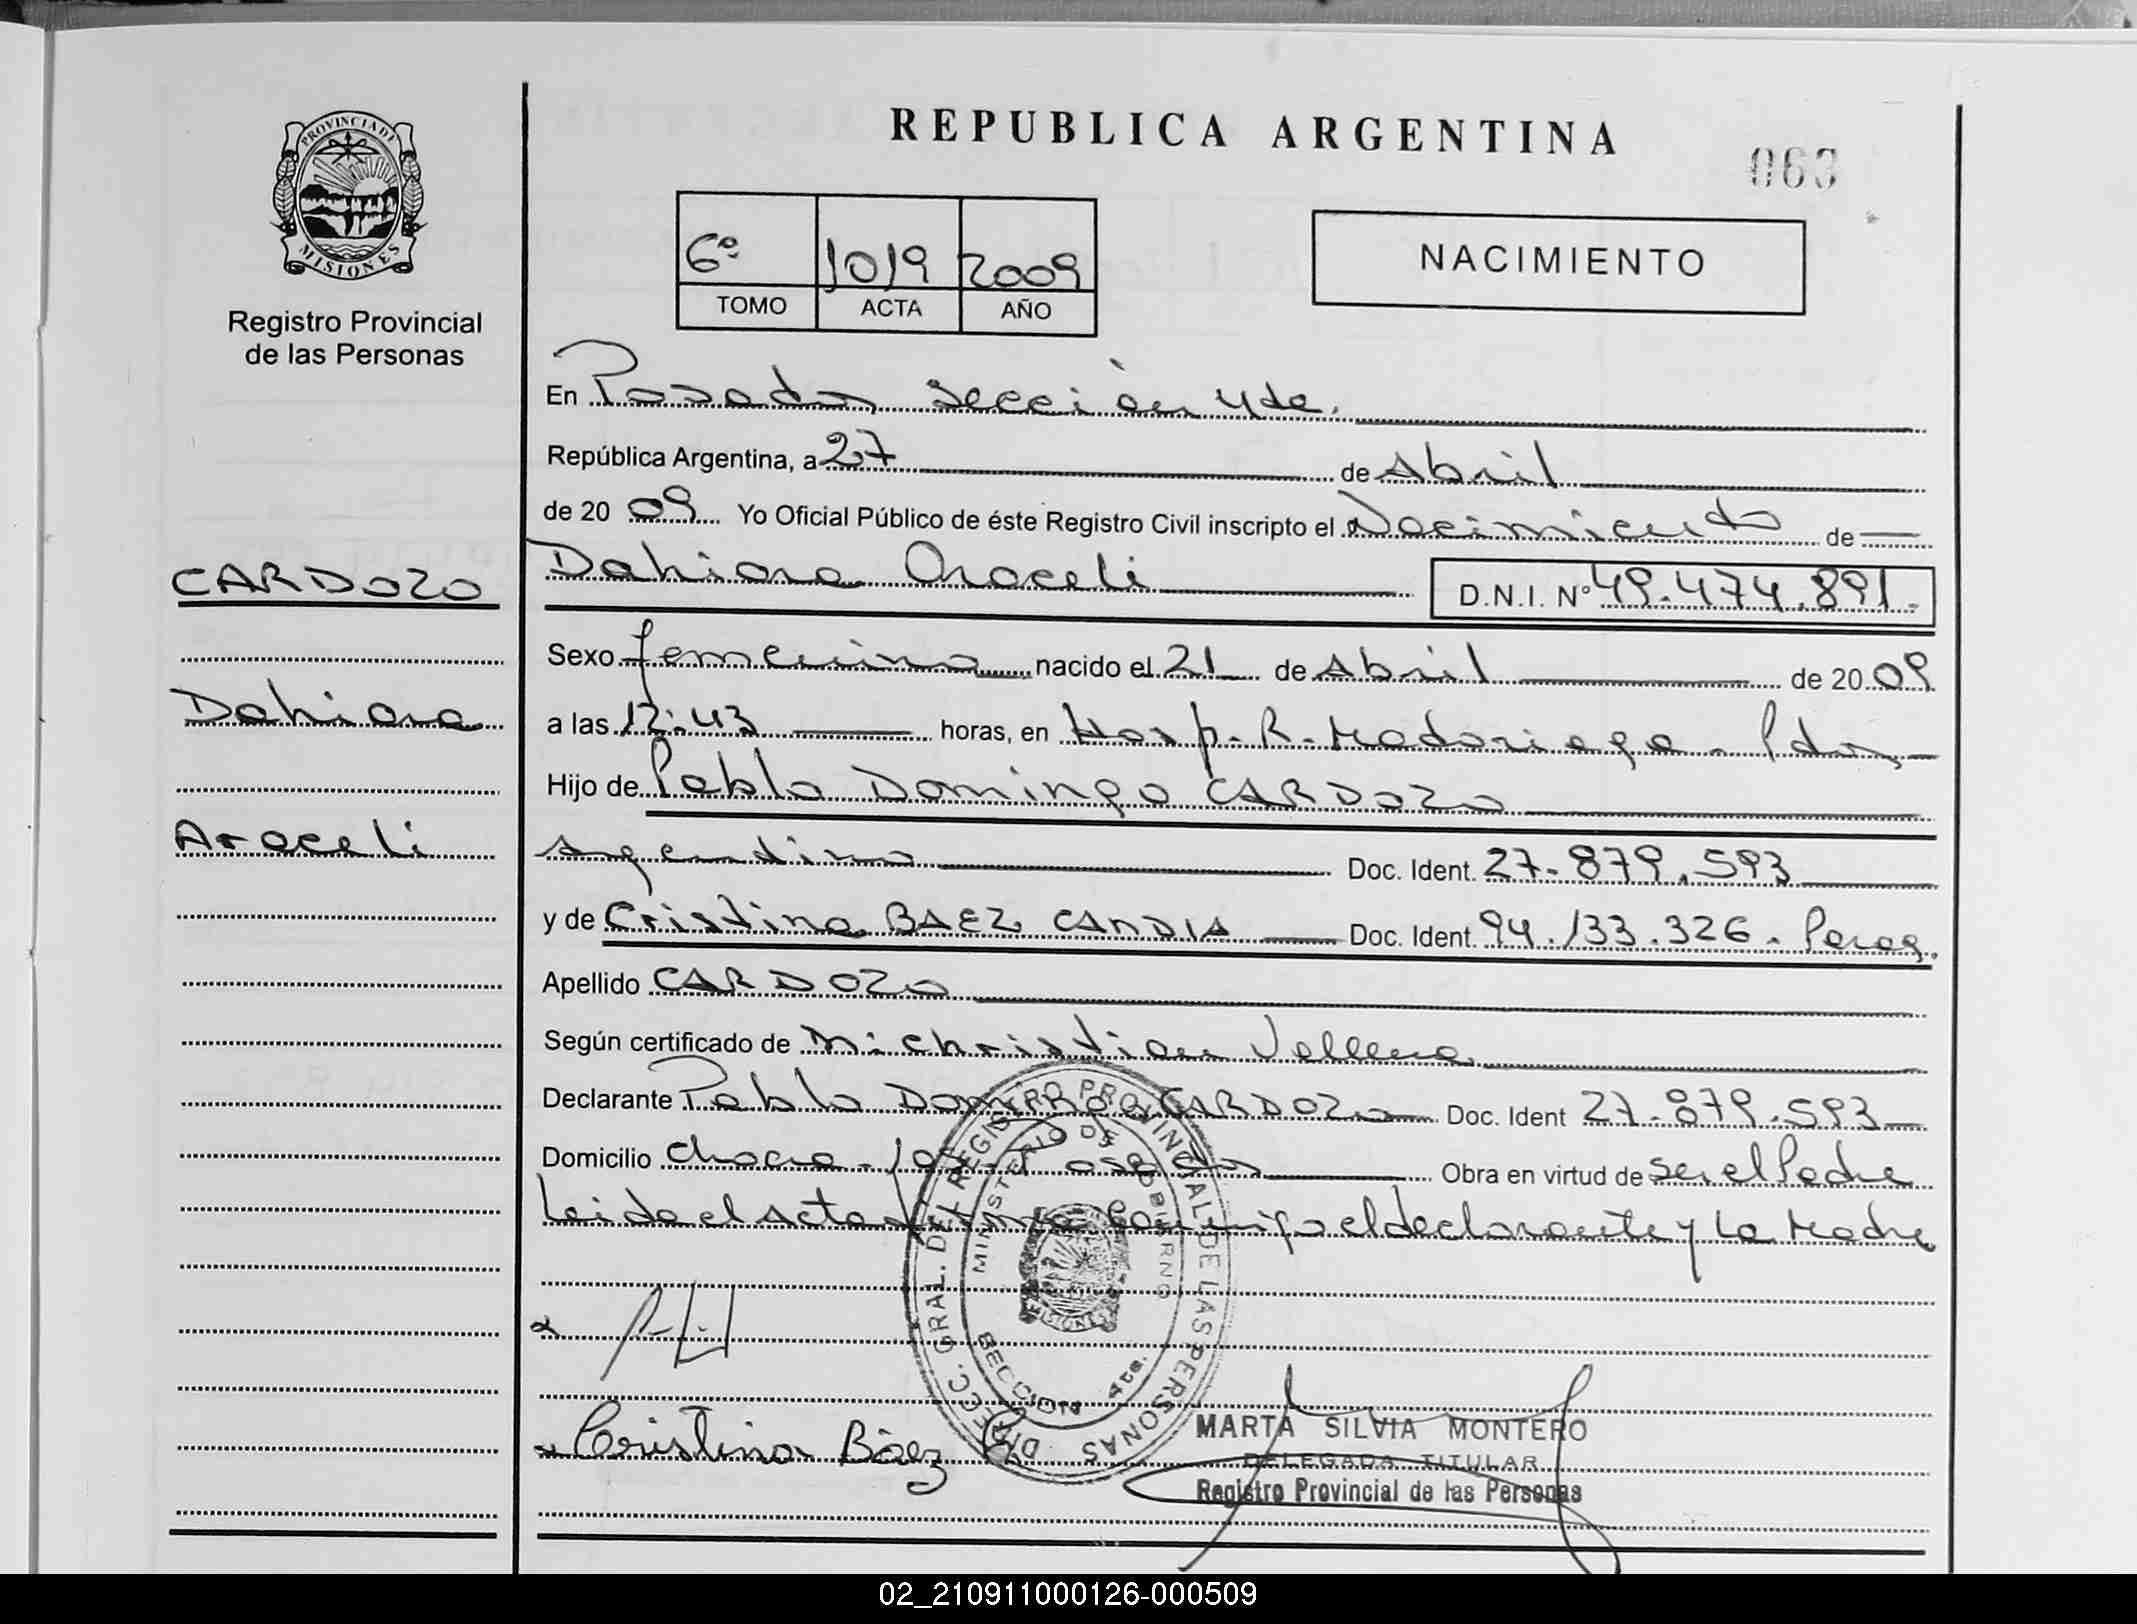 REPUBLICA ARGENTINA
063
PROVINCIA DE
MISIONES
Registro Provincial
de las Personas
6º 1019 2009
TOMO ACTA AÑO
NACIMIENTO
En Posadas, sección 4ta.
República Argentina, a 27 de Abril
de 2009 Yo Oficial Público de éste Registro Civil inscripto el Nacimiento de
CARDOZO
Dahiana Araceli D.N.I. Nº 49.474.891.
Sexo femenino nacido el 21 de Abril de 2009
Dahiana
a las 12:43 horas, en Hosp. R. Madariaga - Pdas,
Hijo de Pablo Domingo CARDOZO
Araceli
Argentino Doc. Ident. 27.879.593
y de Cristina BAEZ CANDIA Doc. Ident. 94.133.326.
Apellido CARDOZO
Según certificado de Christian
Declarante Pablo Domingo CARDOZO Doc. Ident 27.879.593
Domicilio Chacra Posadas Obra en virtud de ser el Padre
Leida el acta firma conmigo el declarante y la Madre
DIRECC. GRAL. DEL REGISTRO PROVINCIAL DE LAS PERSONAS
MINISTERIO DE GOBIERNO
MISIONES
SECCION 4ta.
Cristina Báez C
MARTA SILVIA MONTERO
DELEGADA TITULAR
Registro Provincial de las Personas
02_210911000126-000509